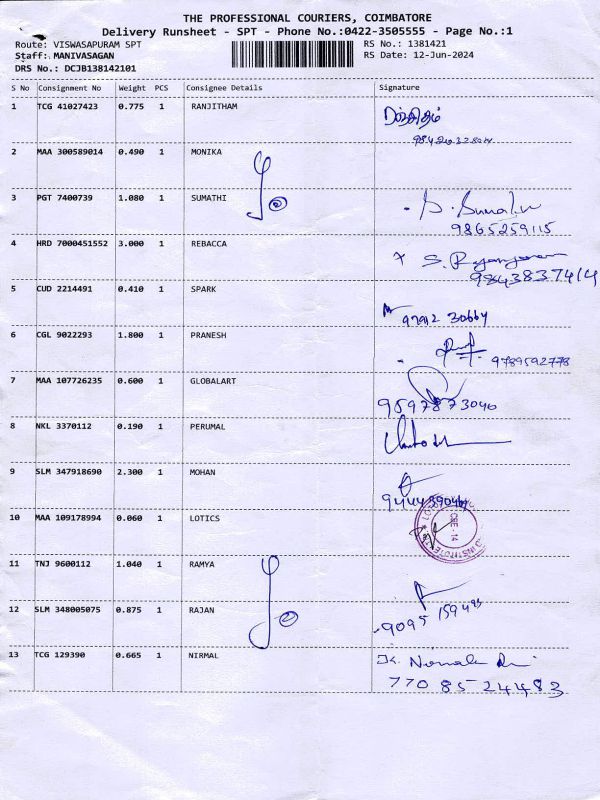 THE PROFESSIONAL COURIERS, COIMBATORE
Delivery Runsheet - SPT - Phone No.:0422-3505555 - Page No.:1
Route: VISWASAPURAM SPT RS No.: 1381421
Staff: MANIVASAGAN RS Date: 12-Jun-2024
DRS No.: DCJB138142101
S No Consignment No Weight PCS Consignee Details Signature
1 TCG 41027423 0.775 1 RANJITHAM
2 MAA 300589014 0.490 1 MONIKA
3 PGT 7400739 1.080 1 SUMATHI
9865259115
4 HRD 7000451552 3.000 1 REBACCA
9843837414
5 CUD 2214491 0.410 1 SPARK
6 CGL 9022293 1.800 1 PRANESH
9789592778
7 MAA 107726235 0.600 1 GLOBALART
9597873040
8 NKL 3370112 0.190 1 PERUMAL
9 SLM 347918690 2.300 1 MOHAN
10 MAA 109178994 0.060 1 LOTICS
CBE - 14
11 TNJ 9600112 1.040 1 RAMYA
12 SLM 348005075 0.875 1 RAJAN
13 TCG 129390 0.665 1 NIRMAL
770 85 24483